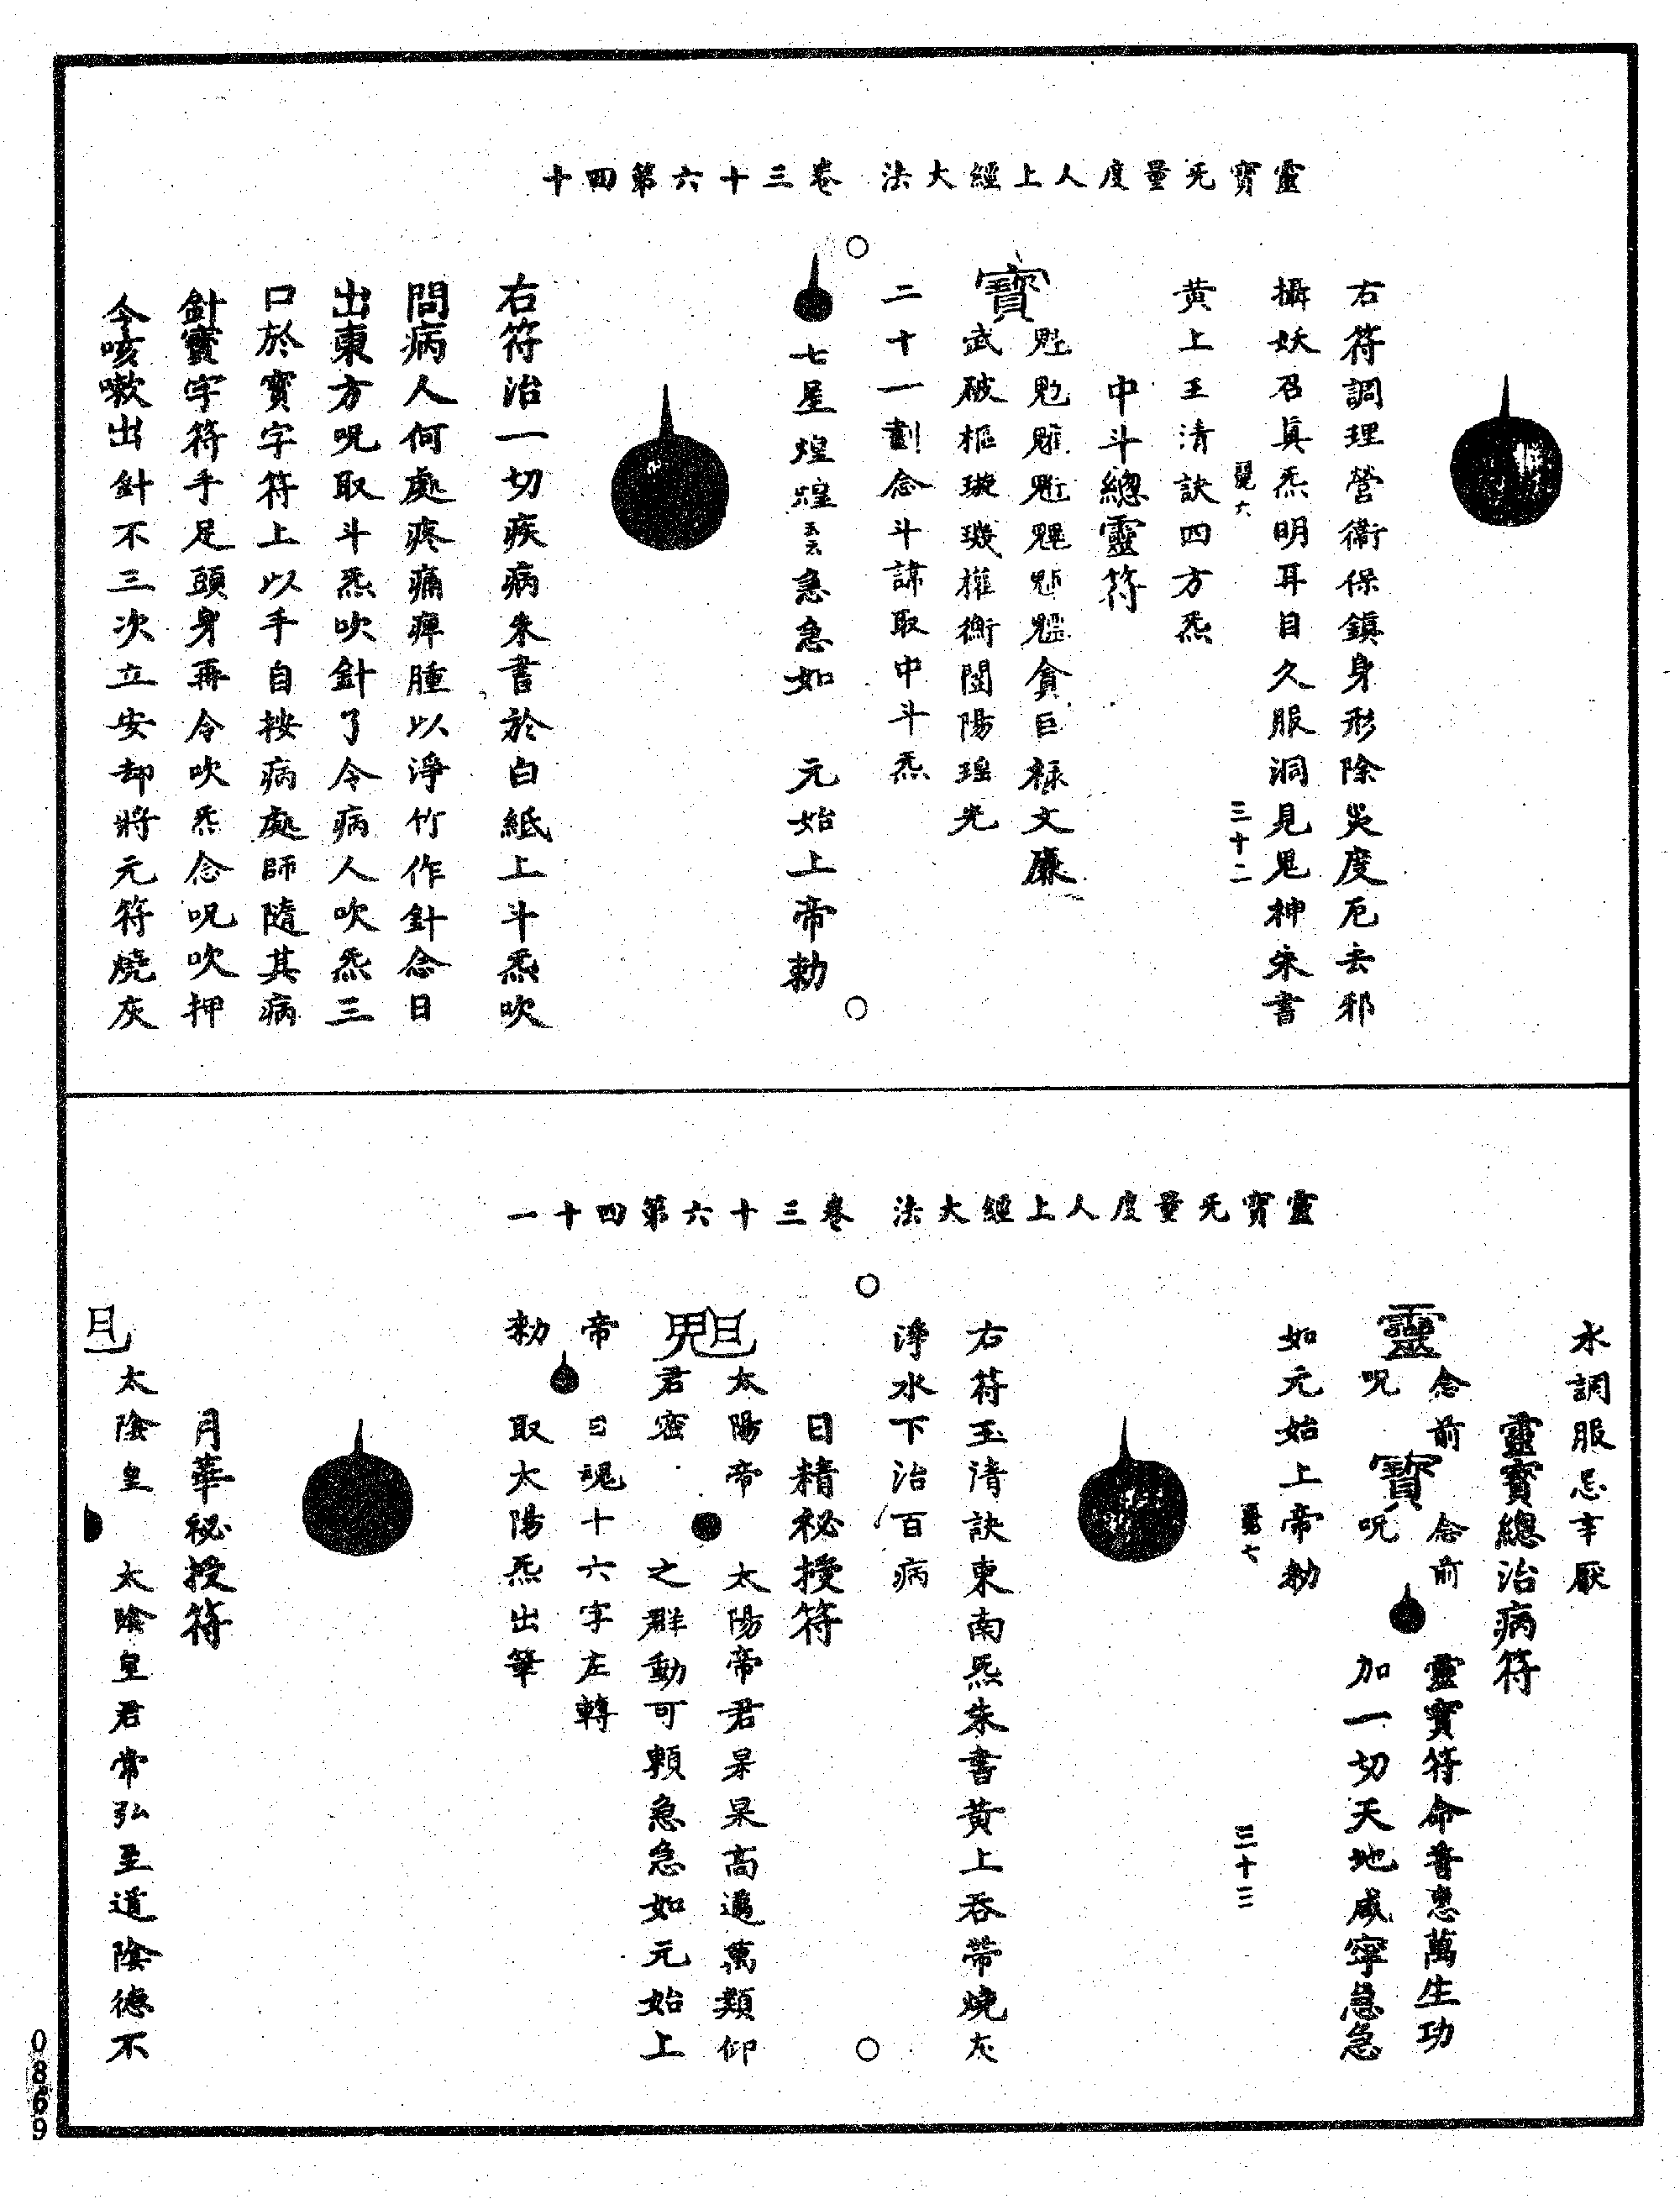 靈寳无量度人上經大法　卷三十六第四十
右符調理營衛保鎮身形除災度厄去邪
攝妖召真炁明耳目久服洞見鬼神朱書
三十二
黃上玉清訣四方炁
中斗總靈符
寶
魁䰢貪巨祿文廉
武破樞璇璣權衡闓陽瑤光
二十一劃念斗諱取中斗炁
七星煌煌五云急急如　元始上帝勑
右符治一切疾病朱書於白紙上斗炁吹
問病人何處疼痛痺腫以淨竹作針念日
出東方呪取斗炁吹針了令病人吹炁三
口於寳字符上以手自按病處師隨其病
針寳字符手足頭身再令吹炁念呪吹押
令咳嗽出針不三次立安却將元符燒灰
靈寳无量度人上經大法　卷三十六第四十一
水調服忌辛厭
靈寳總治病符
靈　念前呪　寶　念前呪　靈寳符命普惠萬生功
加一切天地咸寧急急
如元始上帝勑
三十三
右符玉清訣東南炁朱書黃上吞帶燒灰
淨水下治百病
日精秘授符
太陽帝　太陽帝君杲杲高邁萬類仰
君密　之群動可賴急急如元始上
帝　日魂十六字左轉
勑　取太陽炁出筆
月華秘授符
太陰皇　太陰皇君常弘至道陰德不
0869